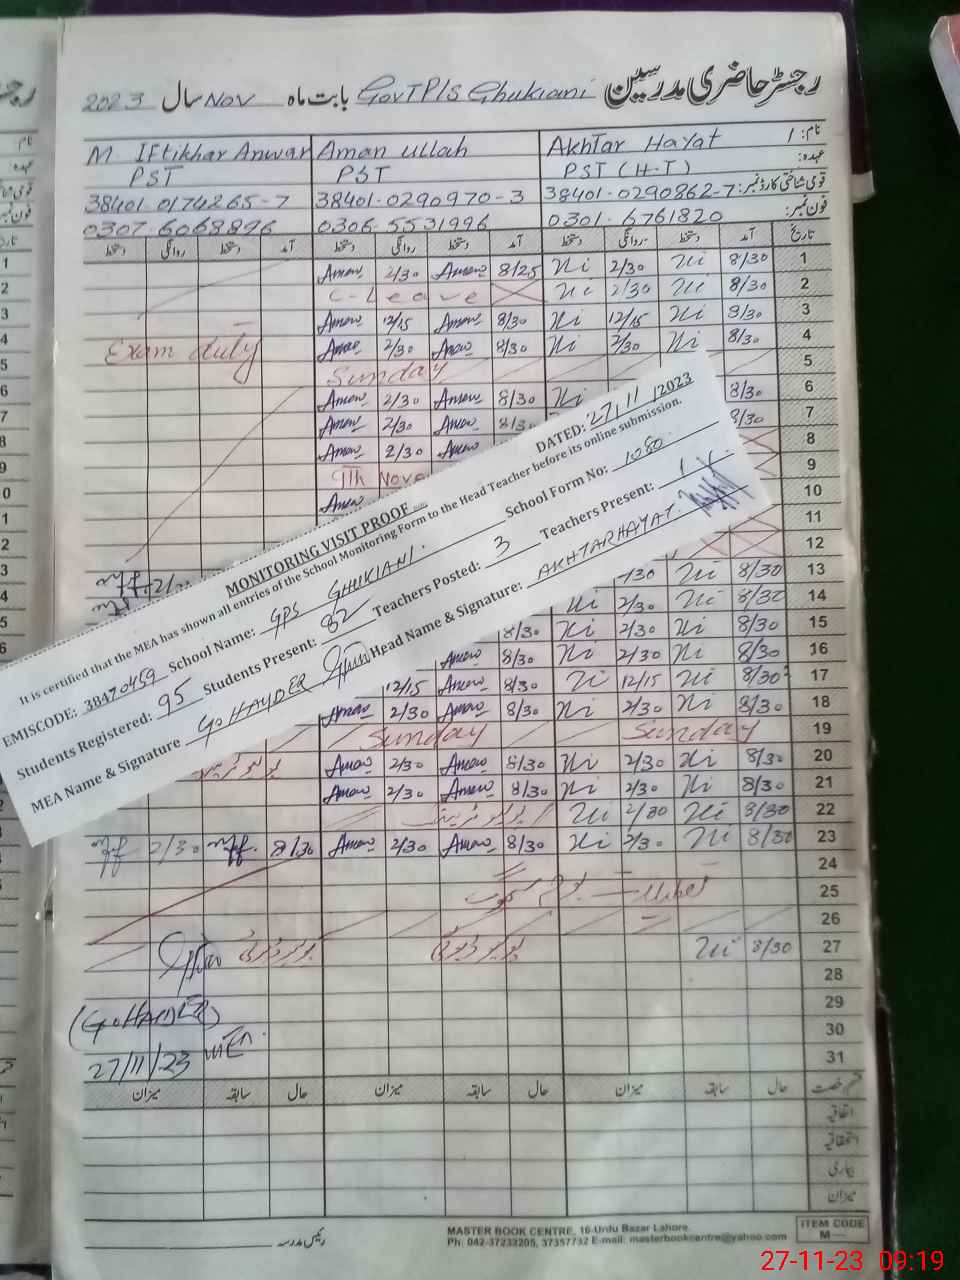 رجسٹر حاضری مدرسین GovT P/S Ghukiani بابت ماہ Nov سال 2023
نام: 1 Akhtar Hayat Aman ullah M. Iftikhar Anwar
عہدہ: PST (H-T) PST PST
قومی شناختی کارڈ نمبر: 38401-0290862-7 38401-0290970-3 38401-0174265-7
فون نمبر: 0301-6761820 0306-5531996 0307-6068896
تاریخ آمد دستخط روانگی دستخط آمد دستخط روانگی دستخط آمد دستخط روانگی دستخط
1 8/30 2/30 8/25 Aman 2/30 Aman
2 8/30 2/30 C-Leave
3 8/30 12/15 8/30 Aman 12/15 Aman
4 8/30 2/30 8/30 Aman 2/30 Aman Exam duty
5 Sunday
6 8/30 8/30 Aman 2/30 Aman
7 8/30 8/30 Aman 2/30 Aman
8 Aman 2/30 Aman
9 9th Nove
10 Aman
11
12
MONITORING VISIT PROOF DATED: 27/11/2023
It is certified that the MEA has shown all entries of the School Monitoring Form to the Head Teacher before its online submission.
EMISCODE: 38470459 School Name: GPS GHUKIANI. School Form No: 1080
Students Registered: 95 Students Present: 82 Teachers Posted: 3 Teachers Present: 1
MEA Name & Signature G. HAYDER Head Name & Signature: AKHTAR HAYAT.
13 8/30
14 8/30 2/30
15 8/30 2/30 8/30
16 8/30 2/30 8/30 Aman
17 8/30 12/15 8/30 Aman 12/15
18 8/30 2/30 8/30 Aman 2/30 Aman
19 Sunday Sunday
20 8/30 2/30 8/30 Aman 2/30 Aman
21 8/30 2/30 8/30 Aman 2/30 Aman
22 8/30 2/30
23 8/30 2/30 8/30 Aman 2/30 Aman 8/30 2/30
24
25
26
27 8/30
28
29 (G. HAIDER)
30
31 27/11/23 MEA
قسم رخصت حال سابقہ میزان حال سابقہ میزان حال سابقہ میزان
اتفاقیہ
استحقاقیہ
بیماری
میزان
رئیس مدرسہ
MASTER BOOK CENTRE, 16-Urdu Bazar Lahore.
Ph: 042-37232205, 37357732 E-mail: masterbookcentre@yahoo.com
ITEM CODE
M—
27-11-23 09:19